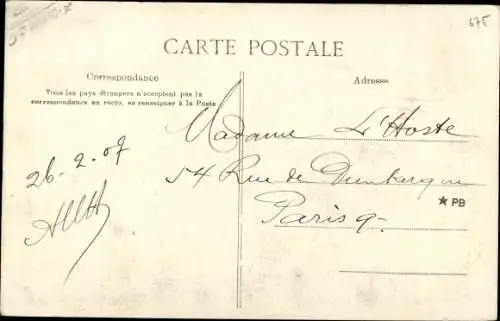 675
CARTE POSTALE
Correspondance
Adresse
Tous les pays étrangers n'acceptent pas la
correspondance au recto, se renseigner à la Poste
Madame L'Hoste
54 Rue de Dunkerque
Paris 9e
26-2-07
★ PB